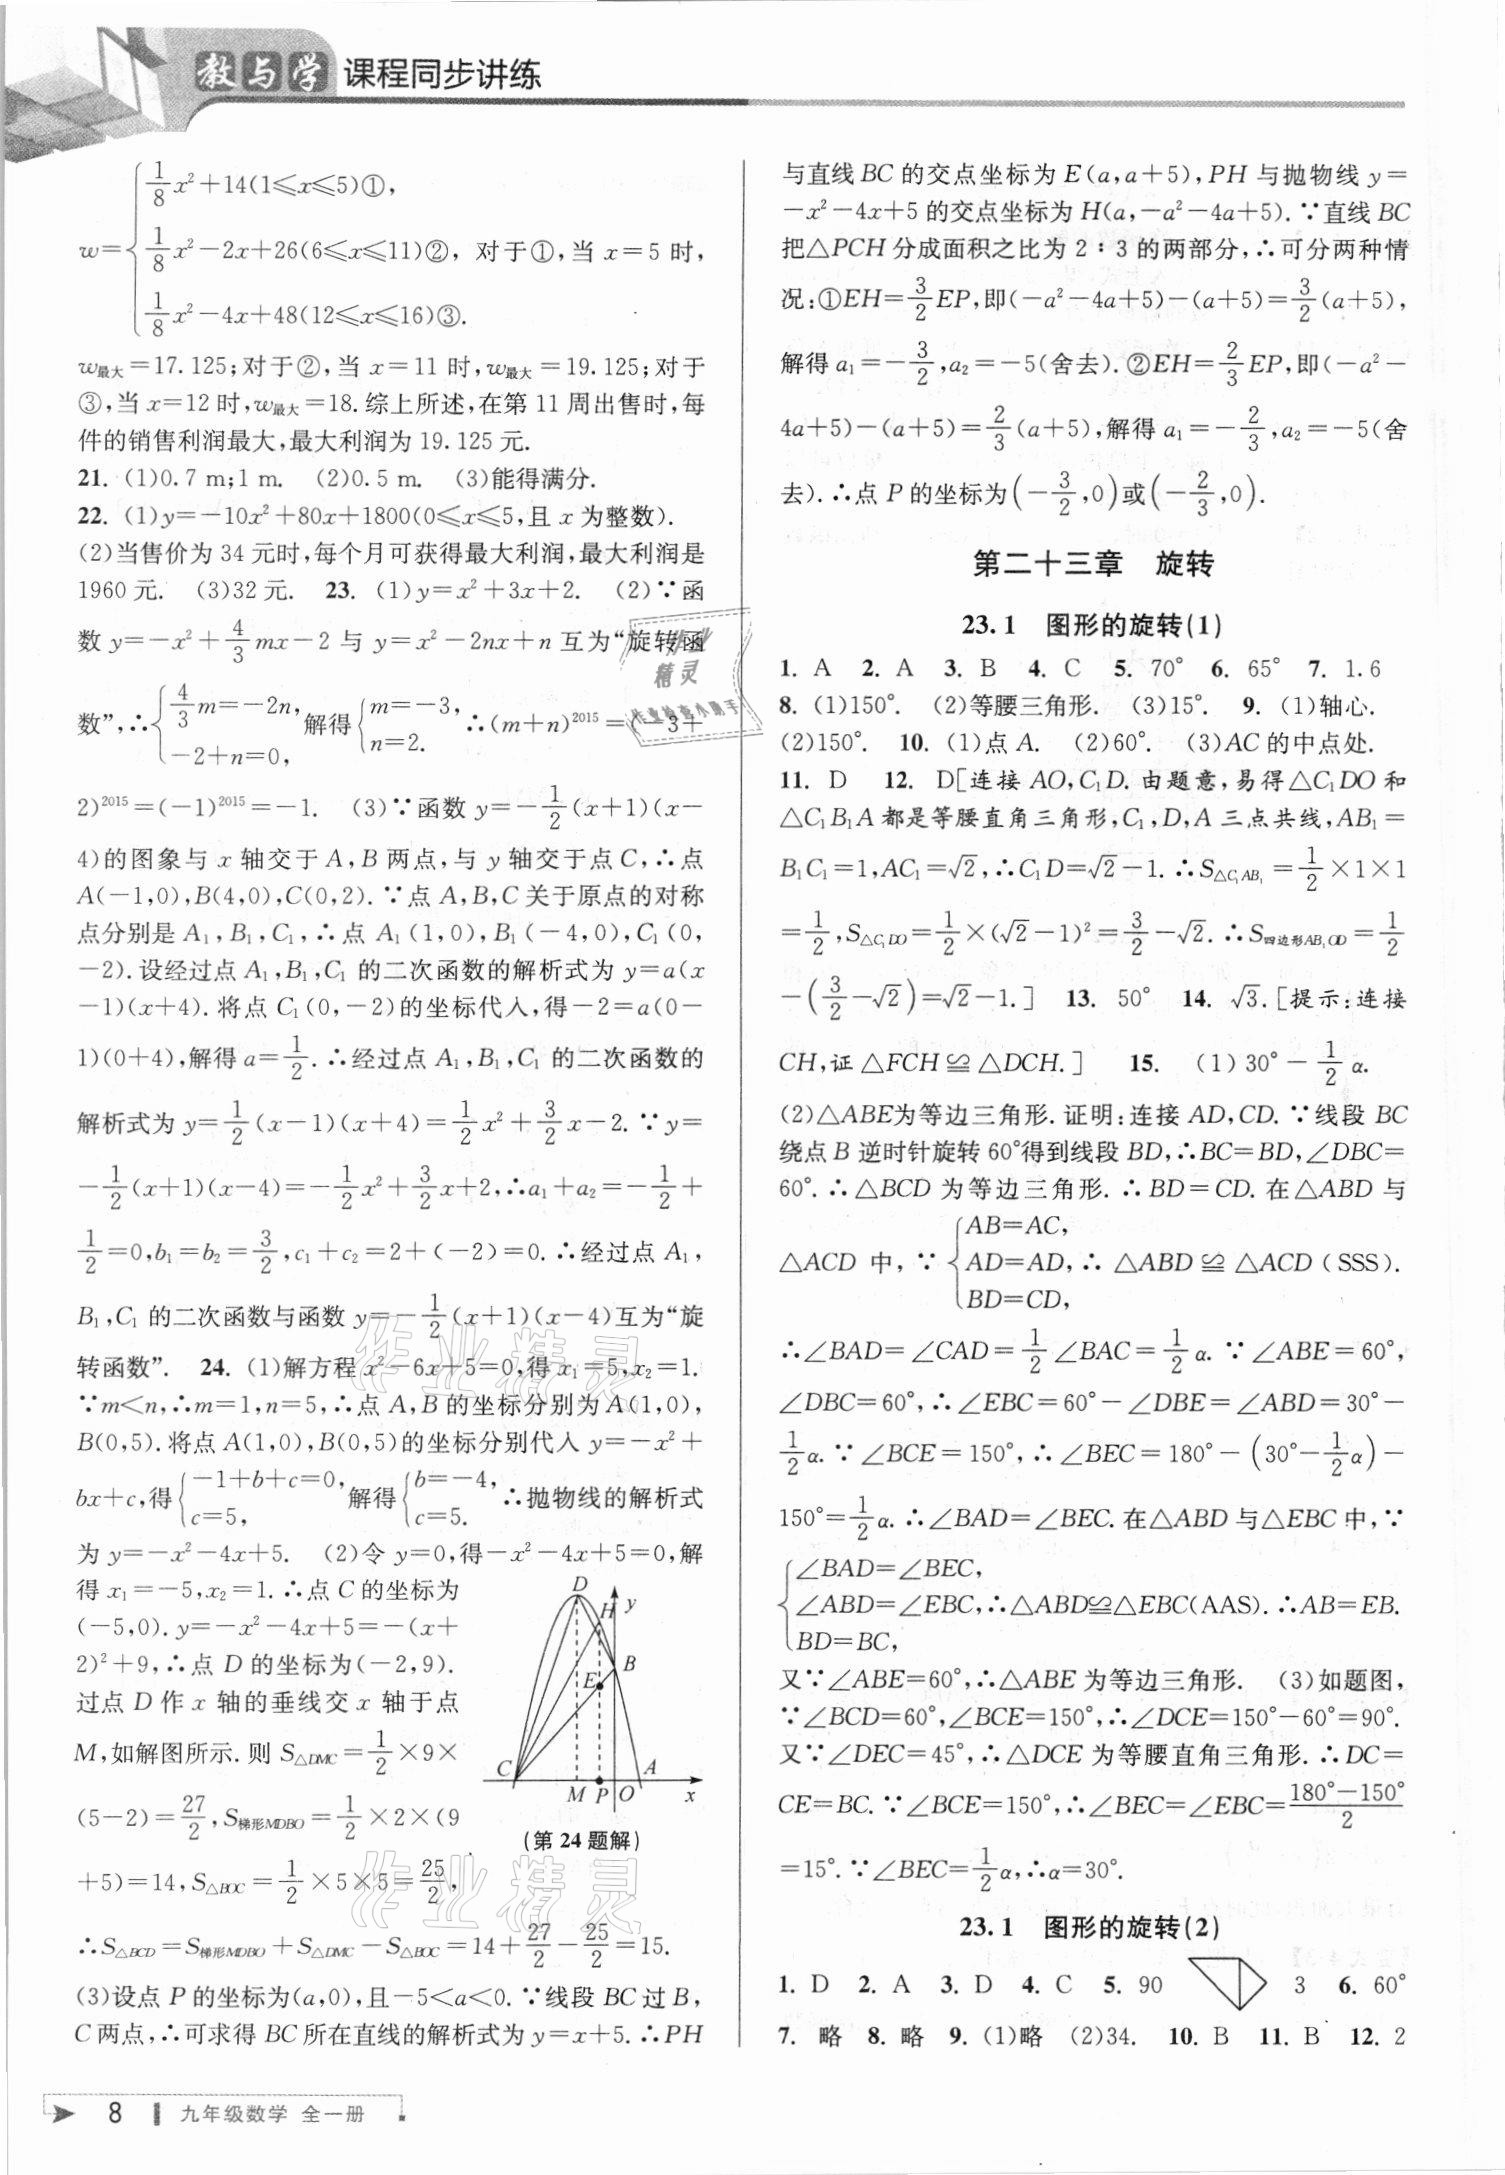 教与学 课程同步讲练
w={1/8x²+14(1⩽x⩽5)①,
1/8x²-2x+26(6⩽x⩽11)②, 对于①,当 x=5 时,
1/8x²-4x+48(12⩽x⩽16)③.
w最大=17.125;对于②,当 x=11 时,w最大=19.125;对于
③,当 x=12 时,w最大=18.综上所述,在第 11 周出售时,每
件的销售利润最大,最大利润为 19.125 元.
21. (1)0.7 m;1 m. (2)0.5 m. (3)能得满分.
22. (1)y=-10x²+80x+1800(0⩽x⩽5,且 x 为整数).
(2)当售价为 34 元时,每个月可获得最大利润,最大利润是
1960 元. (3)32 元. 23. (1)y=x²+3x+2. (2)∵函
数 y=-x²+4/3mx-2 与 y=x²-2nx+n 互为“旋转函
数”,∴{4/3m=-2n, -2+n=0, 解得{m=-3, n=2. ∴(m+n)²⁰¹⁵=(-3+
2)²⁰¹⁵=(-1)²⁰¹⁵=-1. (3)∵函数 y=-1/2(x+1)(x-
4)的图象与 x 轴交于 A,B 两点,与 y 轴交于点 C,∴点
A(-1,0),B(4,0),C(0,2).∵点 A,B,C 关于原点的对称
点分别是 A₁,B₁,C₁,∴点 A₁(1,0),B₁(-4,0),C₁(0,
-2).设经过点 A₁,B₁,C₁ 的二次函数的解析式为 y=a(x
-1)(x+4).将点 C₁(0,-2)的坐标代入,得-2=a(0-
1)(0+4),解得 a=1/2.∴经过点 A₁,B₁,C₁ 的二次函数的
解析式为 y=1/2(x-1)(x+4)=1/2x²+3/2x-2.∵y=
-1/2(x+1)(x-4)=-1/2x²+3/2x+2,∴a₁+a₂=-1/2+
1/2=0,b₁=b₂=3/2,c₁+c₂=2+(-2)=0.∴经过点 A₁,
B₁,C₁ 的二次函数与函数 y=-1/2(x+1)(x-4)互为“旋
转函数”. 24. (1)解方程 x²-6x+5=0,得 x₁=5,x₂=1.
∵m<n,∴m=1,n=5,∴点 A,B 的坐标分别为 A(1,0),
B(0,5).将点 A(1,0),B(0,5)的坐标分别代入 y=-x²+
bx+c,得{-1+b+c=0, c=5, 解得{b=-4, c=5. ∴抛物线的解析式
为 y=-x²-4x+5. (2)令 y=0,得-x²-4x+5=0,解
得 x₁=-5,x₂=1.∴点 C 的坐标为
(-5,0).y=-x²-4x+5=-(x+
2)²+9,∴点 D 的坐标为(-2,9).
过点 D 作 x 轴的垂线交 x 轴于点
M,如解图所示.则 S△DMC=1/2×9×
(5-2)=27/2,S梯形MDBO=1/2×2×(9
+5)=14,S△BOC=1/2×5×5=25/2,
∴S△BCD=S梯形MDBO+S△DMC-S△BOC=14+27/2-25/2=15.
(3)设点 P 的坐标为(a,0),且-5<a<0.∵线段 BC 过 B,
C 两点,∴可求得 BC 所在直线的解析式为 y=x+5.∴PH
D
H y
B
E
C A
M P O x
(第 24 题解)
与直线 BC 的交点坐标为 E(a,a+5),PH 与抛物线 y=
-x²-4x+5 的交点坐标为 H(a,-a²-4a+5).∵直线 BC
把△PCH 分成面积之比为 2∶3 的两部分,∴可分两种情
况:①EH=3/2EP,即(-a²-4a+5)-(a+5)=3/2(a+5),
解得 a₁=-3/2,a₂=-5(舍去).②EH=2/3EP,即(-a²-
4a+5)-(a+5)=2/3(a+5),解得 a₁=-2/3,a₂=-5(舍
去).∴点 P 的坐标为(-3/2,0)或(-2/3,0).
第二十三章 旋转
23.1 图形的旋转(1)
1. A 2. A 3. B 4. C 5. 70° 6. 65° 7. 1.6
8. (1)150°. (2)等腰三角形. (3)15°. 9. (1)轴心.
(2)150°. 10. (1)点 A. (2)60°. (3)AC 的中点处.
11. D 12. D[连接 AO,C₁D.由题意,易得△C₁DO 和
△C₁B₁A 都是等腰直角三角形,C₁,D,A 三点共线,AB₁=
B₁C₁=1,AC₁=√2,∴C₁D=√2-1.∴S△C₁AB₁=1/2×1×1
=1/2,S△C₁DO=1/2×(√2-1)²=3/2-√2.∴S四边形AB₁OD=1/2
-(3/2-√2)=√2-1.] 13. 50° 14. √3.[提示:连接
CH,证△FCH≌△DCH.] 15. (1)30°-1/2α.
(2)△ABE为等边三角形.证明:连接 AD,CD.∵线段 BC
绕点 B 逆时针旋转 60°得到线段 BD,∴BC=BD,∠DBC=
60°.∴△BCD 为等边三角形.∴BD=CD.在△ABD 与
△ACD 中,∵{AB=AC, AD=AD, BD=CD, ∴△ABD≌△ACD(SSS).
∴∠BAD=∠CAD=1/2∠BAC=1/2α.∵∠ABE=60°,
∠DBC=60°,∴∠EBC=60°-∠DBE=∠ABD=30°-
1/2α.∵∠BCE=150°,∴∠BEC=180°-(30°-1/2α)-
150°=1/2α.∴∠BAD=∠BEC.在△ABD 与△EBC 中,∵
{∠BAD=∠BEC,
∠ABD=∠EBC,∴△ABD≌△EBC(AAS).∴AB=EB.
BD=BC,
又∵∠ABE=60°,∴△ABE 为等边三角形. (3)如题图,
∵∠BCD=60°,∠BCE=150°,∴∠DCE=150°-60°=90°.
又∵∠DEC=45°,∴△DCE 为等腰直角三角形.∴DC=
CE=BC.∵∠BCE=150°,∴∠BEC=∠EBC=180°-150°/2
=15°.∵∠BEC=1/2α,∴α=30°.
23.1 图形的旋转(2)
1. D 2. A 3. D 4. C 5. 90 3 6. 60°
7. 略 8. 略 9. (1)略 (2)34. 10. B 11. B 12. 2
8 九年级数学 全一册
作业精灵
作业精灵